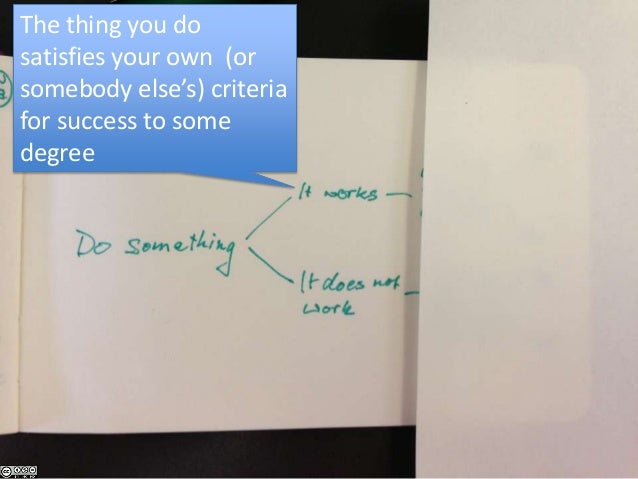 The thing you do
satisfies your own (or
somebody else’s) criteria
for success to some
degree
It works
Do something
It does not
work